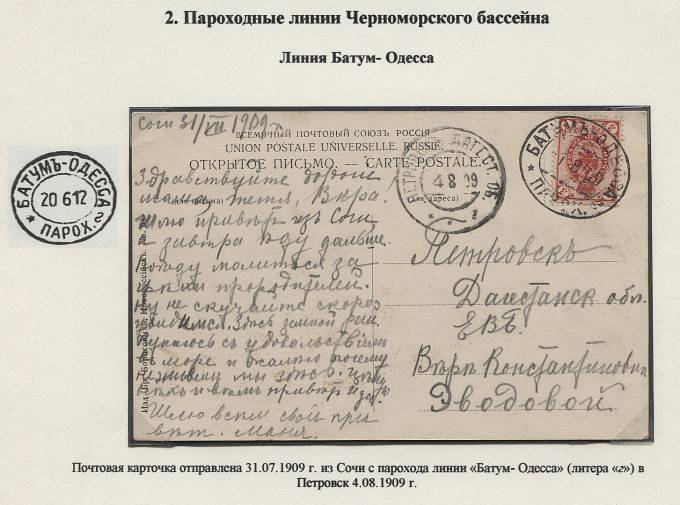 2. Пароходные линии Черноморского бассейна
Линия Батум- Одесса
БАТУМЪ-ОДЕССА
20 6 12
ПАРОХ. г
Сочи 31/VII 1909 г.
ВСЕМІРНЫЙ ПОЧТОВЫЙ СОЮЗЪ РОССІЯ.
UNION POSTALE UNIVERSELLE. RUSSIE.
ОТКРЫТОЕ ПИСЬМО. — CARTE POSTALE.
ДАГЕСТ. ОБ.
4 8 09
БАТУМЪ-ОДЕССА
(для адреса)
Здравствуйте дорогіе
мама, тетя, Вѣра.
Шлю привѣтъ изъ Сочи
а завтра ѣду дальше.
молиться за
ну не скучайте скоро
увидимся. Здѣсь
съ удовольствіем
въ море и
мы здѣсь
привѣт
Шлю всем свой при
вѣт. Маня.
Петровскъ
Дагестанск обл.
ЕВБ.
Вѣрѣ Константиновнѣ
Эводовой
Почтовая карточка отправлена 31.07.1909 г. из Сочи с парохода линии «Батум- Одесса» (литера «г») в
Петровск 4.08.1909 г.